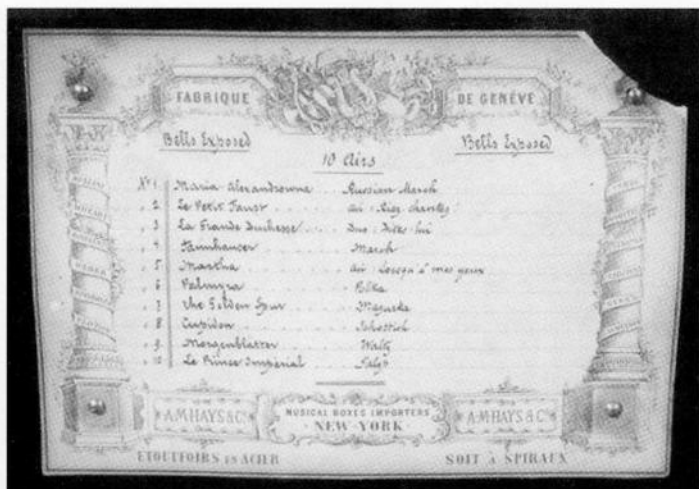 FABRIQUE DE GENÈVE
Bells Exposed Bells Exposed
10 Airs
Nº 1 Maria Alexandrowna Russian March
" 2 Le Petit Faust Air: Riez chantez
" 3 La Grande Duchesse Duo: Dites lui
" 4 Tannhauser March
" 5 Martha Air: Lorsqu'à mes yeux
" 6 Palmyra Polka
" 7 The Golden Spur Mazurka
" 8 Cupidon Schottich
" 9 Morgenblatter Waltz
" 10 Le Prince Impérial Galop
MOZART
WEBER
A.M.HAYS & Cº MUSICAL BOXES IMPORTERS A.M.HAYS & Cº
NEW-YORK
ETOUFFOIRS EN ACIER SOIT À SPIRAUX